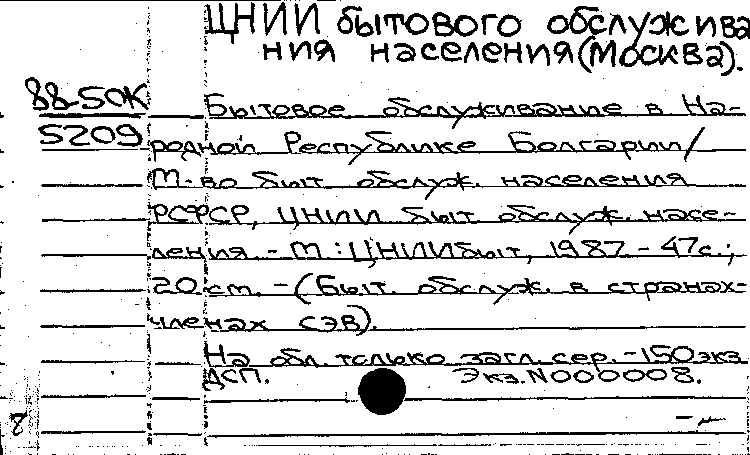 ЦНИИ бытового обслужива
ния населения (Москва).
88-50К
5209
Бытовое обслуживание в На-
родной Республике Болгарии/
М-во быт. обслуж. населения
РСФСР, ЦНИИ быт. обслуж. насе-
ления. - М.: ЦНИИбыт, 1987. - 47с.;
20 см. - (Быт. обслуж. в странах-
членах СЭВ).
На обл. только загл. сер. - 150 экз.
ДСП. Экз. N000008.
8